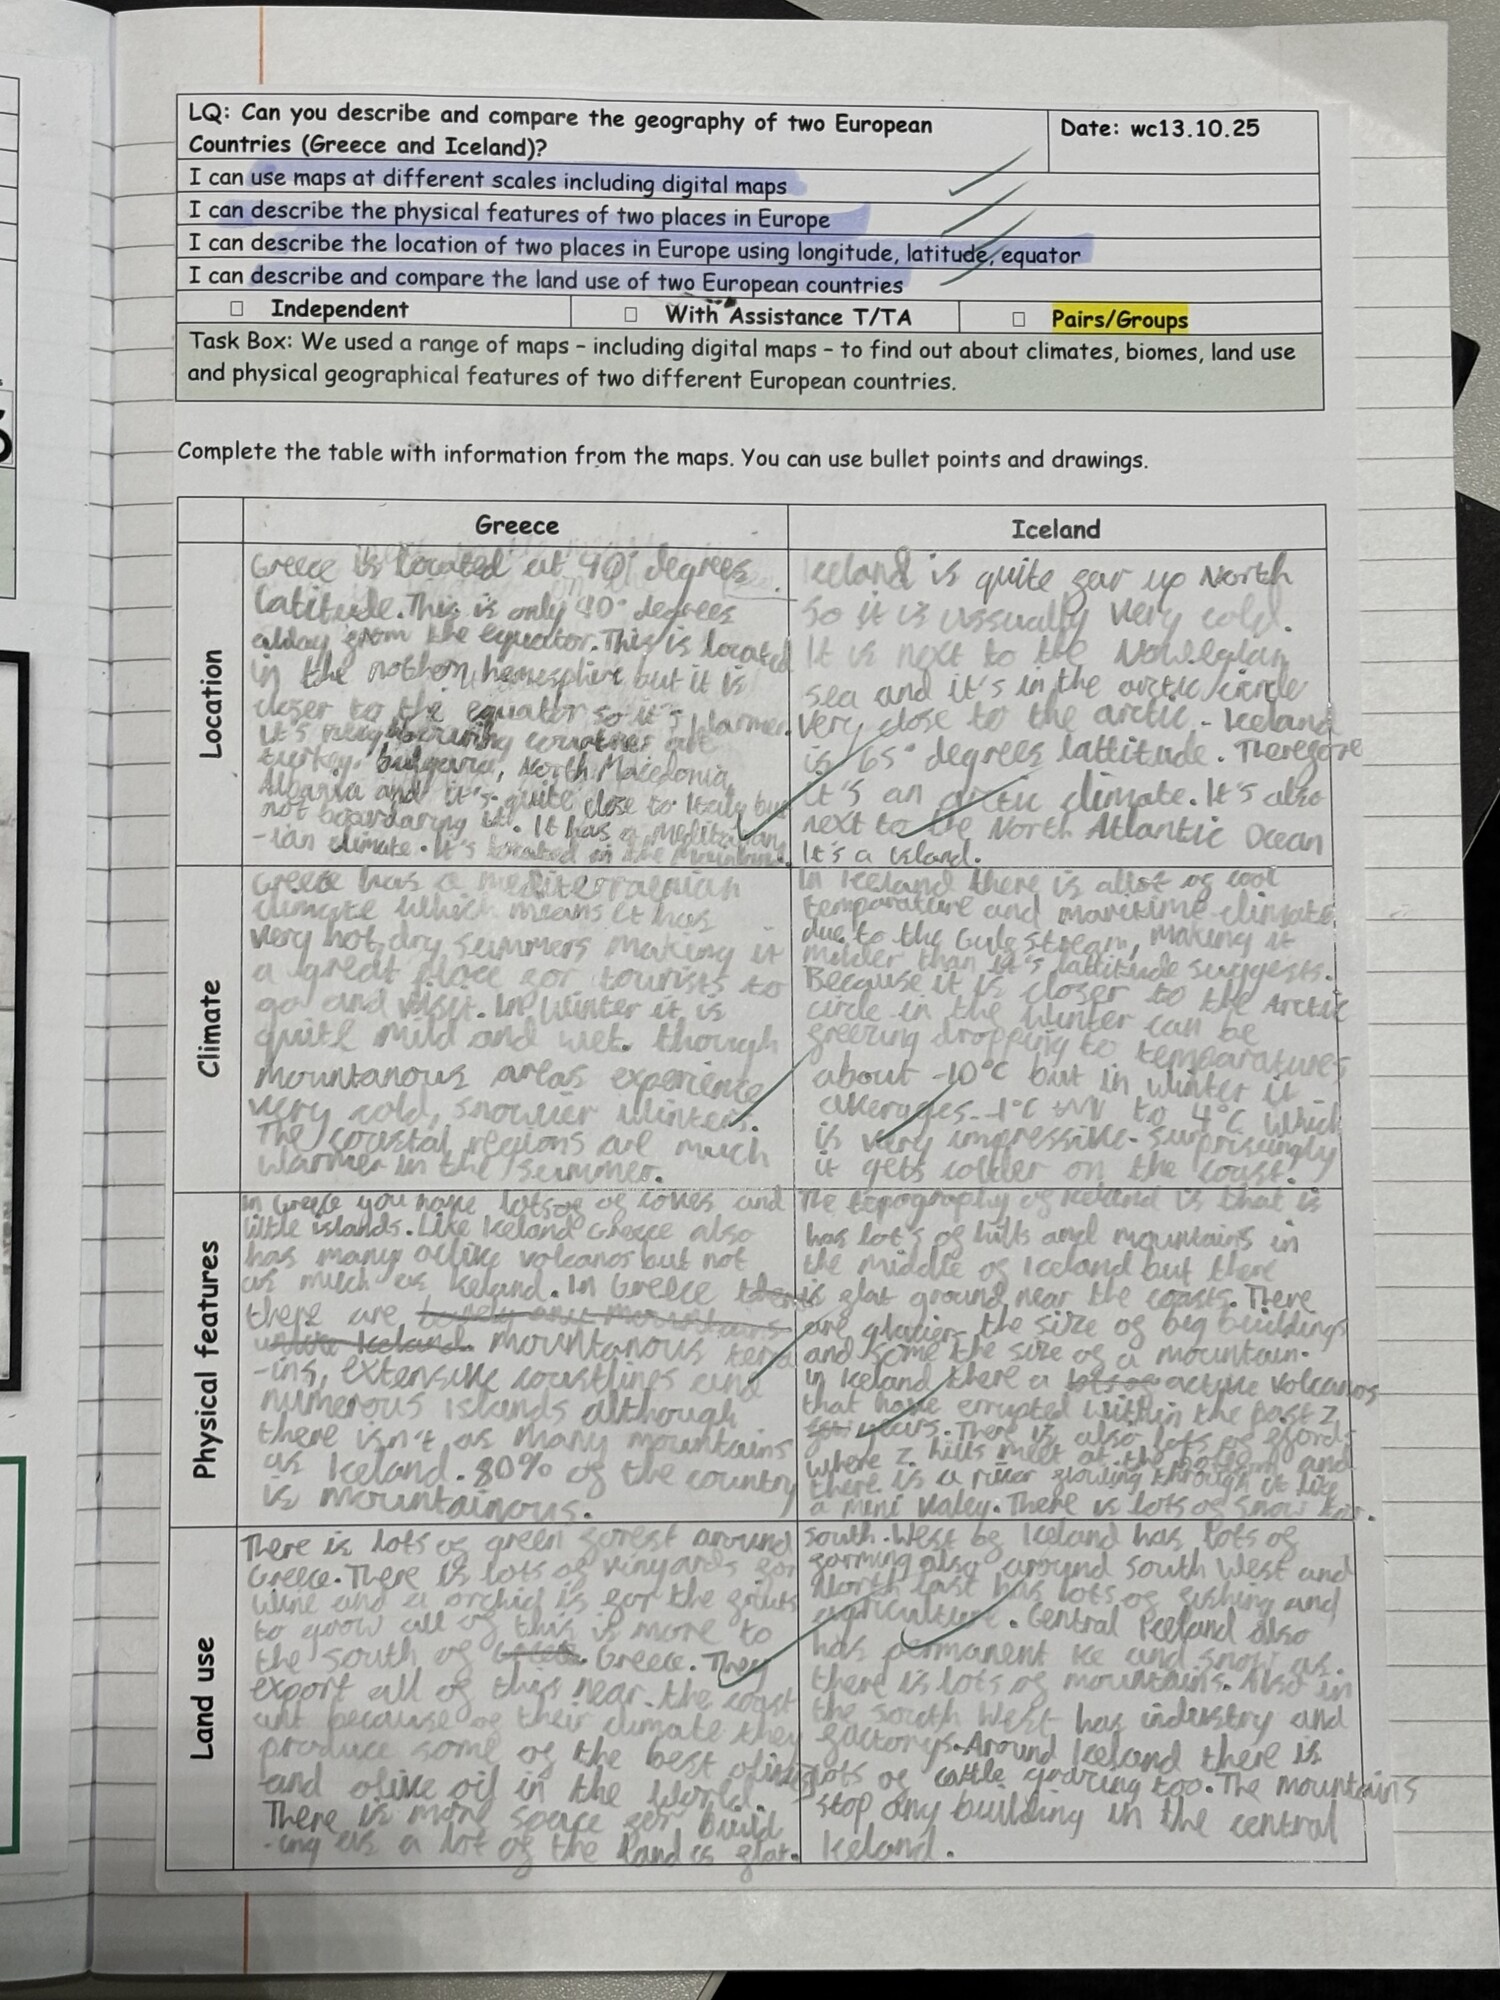 LQ: Can you describe and compare the geography of two European
Countries (Greece and Iceland)?
Date: wc13.10.25
I can use maps at different scales including digital maps
I can describe the physical features of two places in Europe
I can describe the location of two places in Europe using longitude, latitude, equator
I can describe and compare the land use of two European countries
☐ Independent
☐ With Assistance T/TA
☐ Pairs/Groups
Task Box: We used a range of maps – including digital maps – to find out about climates, biomes, land use
and physical geographical features of two different European countries.
Complete the table with information from the maps. You can use bullet points and drawings.
Greece
Iceland
Location
Greece is located at 40° degrees
latitude. This is only 40° degrees
away from the equator. This is located
in the nothern hemesphire but it is
closer to the equator so it's warmer.
It's neighbouring countries are
turkey, bulgaria, North Macedonia,
Albania and it's quite close to Italy but
not boardaring it. It has a Medita
-ian climate. It's located in the
Iceland is quite far up North
so it is ussually very cold.
It is next to the Nowegian
sea and it's in the arctic circle
very close to the arctic. Iceland
is 65° degrees lattitude. Therefore
it's an arctic climate. It's also
next to the North Atlantic Ocean
It's a island.
Climate
Greece has a mediterraenian
climate which means it has
very hot, dry summers making it
a great place for tourists to
go and visit. In Winter it is
quite mild and wet. though
mountanous areas experience
very cold, snowier winters.
The coastal regions are much
warmer in the summer.
In Iceland there is allot of cool
temparature and maritime climate
due to the Gulf stream, making it
milder than it's lattitude suggests.
Because it is closer to the Arctic
circle in the winter can be
freezing dropping to temparatures
about -10°C but in winter it
averages -1°C to 4°C which
is very impressive. surprisingly
it gets colder on the coast.
Physical features
In Greece you have of coves and
little islands. Like Iceland Greece also
has many active volcanos but not
as much as Iceland. In Greece
there are barely any mountains
unlike Iceland mountanous terra
-ins, extensive coastlines and
numerous islands although
there isn't as many mountains
as Iceland. 80% of the country
is mountainous.
The topography of Iceland is that is
has lot's of hills and mountains in
the middle of Iceland but there
is flat ground near the coasts. There
are glaciers the size of big buildings
and some the size of a mountain.
in Iceland there a lots of active volcanos
that have errupted within the past 2
few years. There is also lots of fjords
where 2 hills meet at the bottom and
there is a river flowing through it like
a mini valey. There is lots of snow
Land use
There is lots of green forest around
Greece. There is lots of vinyards for
wine and a orchid is for the fruits
to grow all of this is more to
the south of Greece. They
export all of this near the coast
because of their climate they
produce some of the best olives
and olive oil in the world.
There is more space for build
-ing as a lot of the land is flat.
south-West of Iceland has lots of
farming also around South West and
North East has lots of fishing and
agriculture. Central Iceland also
has permanent ice and snow as
there is lots of mountains. Also in
the south West has industry and
factorys. Around Iceland there is
lots of cattle grazing too. The mountains
stop any building in the central
Iceland.